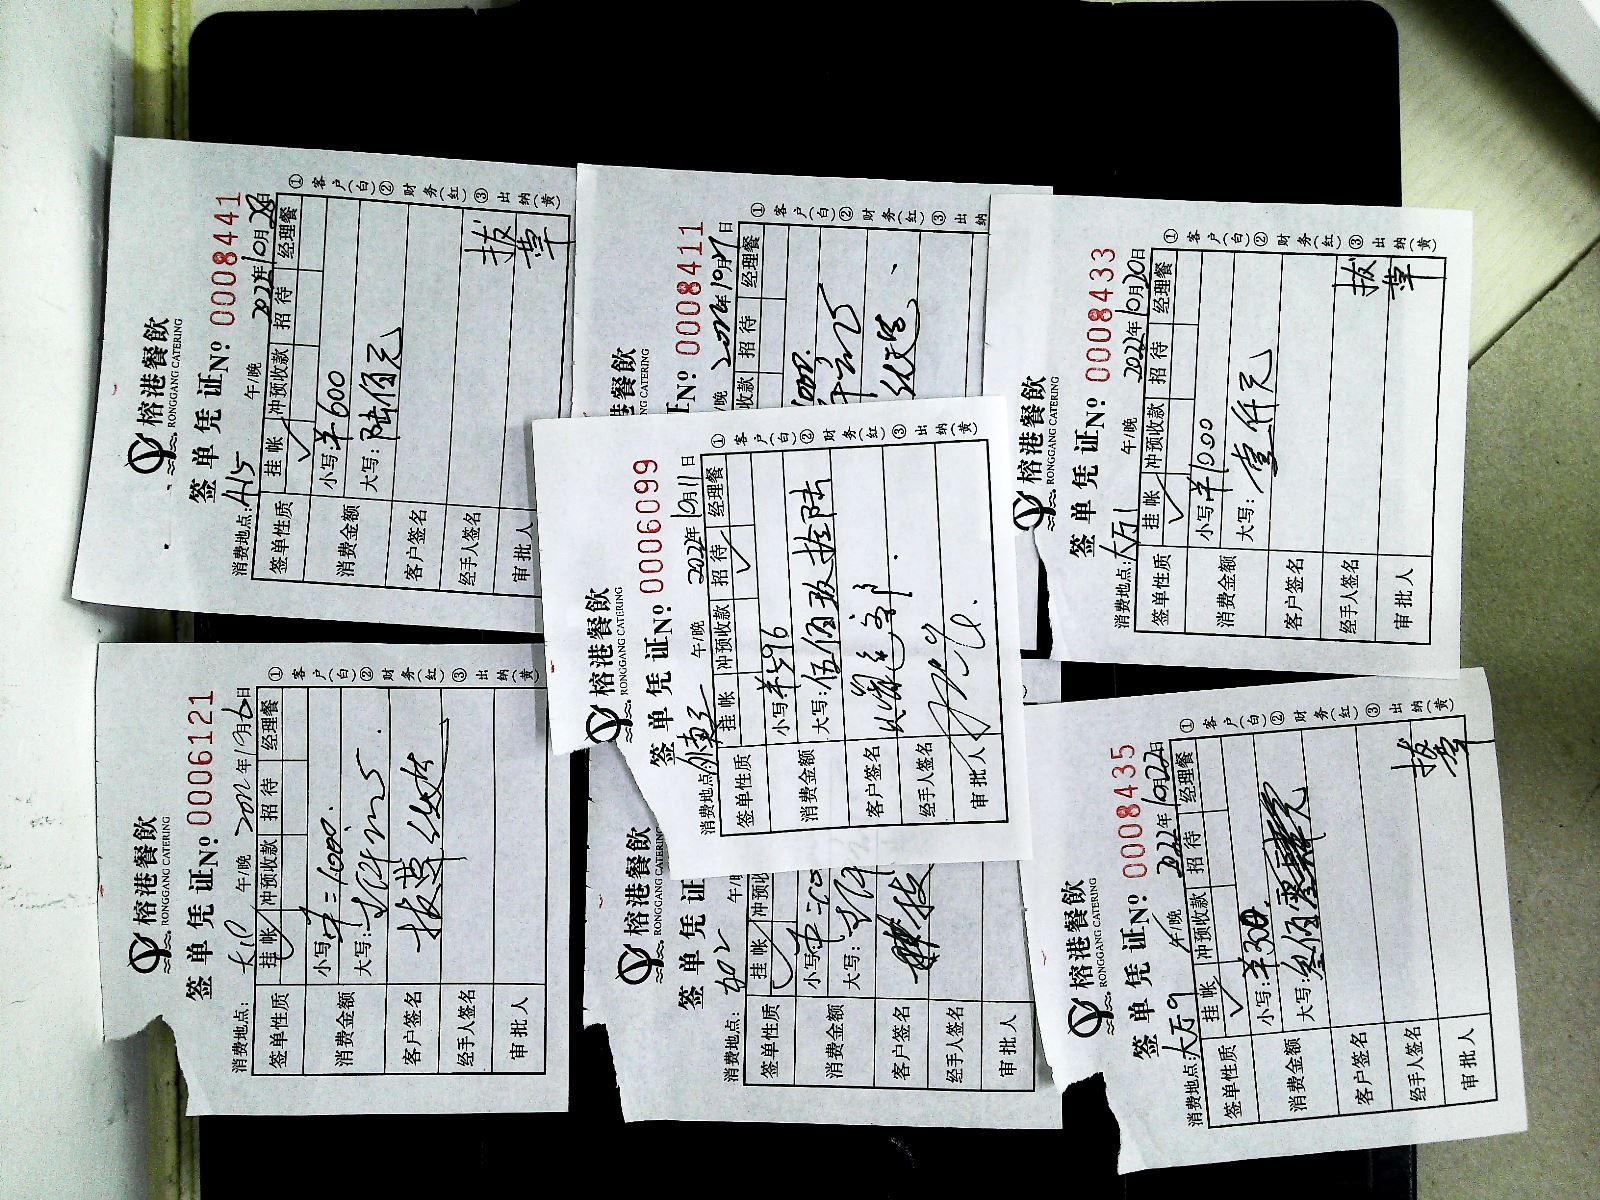 榕港餐飲
RONGGANG CATERING
签单凭证 Nº 0008441
消费地点:A15 午/晚 2022年10月28日
签单性质 挂帐 冲预收款 招待 经理餐
消费金额 小写:¥600
大写:陆佰元
客户签名
经手人签名 拔草
审批人
①客户(白)②财务(红)③出纳(黄)
餐飲
CATERING
Nº 0008411
/晚 2022年10月27日
收款 招待 经理餐
①客户(白)②财务(红)③出纳
榕港餐飲
RONGGANG CATERING
签单凭证 Nº 0008433
消费地点:大万1 午/晚 2022年10月20日
签单性质 挂帐 冲预收款 招待 经理餐
消费金额 小写:¥1000
大写:壹仟元
客户签名
经手人签名 拔草
审批人
①客户(白)②财务(红)③出纳(黄)
榕港餐飲
RONGGANG CATERING
签单凭证 Nº 0006099
消费地点: 午/晚 2022年10月11日
签单性质 挂帐 冲预收款 招待 经理餐
消费金额 小写:¥596
大写:伍佰玖拾陆
客户签名
经手人签名
审批人
①客户(白)②财务(红)③出纳(黄)
榕港餐飲
RONGGANG CATERING
签单凭证 Nº 0006121
消费地点: 午/晚 2022年10月6日
签单性质 挂帐 冲预收款 招待 经理餐
消费金额 小写:1000.
大写:
客户签名 拔草
经手人签名
审批人
①客户(白)②财务(红)③出纳(黄)
榕港餐飲
RONGGANG CATERING
签单凭证
消费地点: 402 午/
签单性质 挂帐 冲预收
消费金额 小写:
大写:
客户签名
经手人签名
审批人
榕港餐飲
RONGGANG CATERING
签单凭证 Nº 0008435
消费地点:大万9 午/晚 2022年10月22日
签单性质 挂帐 冲预收款 招待 经理餐
消费金额 小写:¥300.
大写:叁佰
客户签名
经手人签名 拔草
审批人
①客户(白)②财务(红)③出纳(黄)